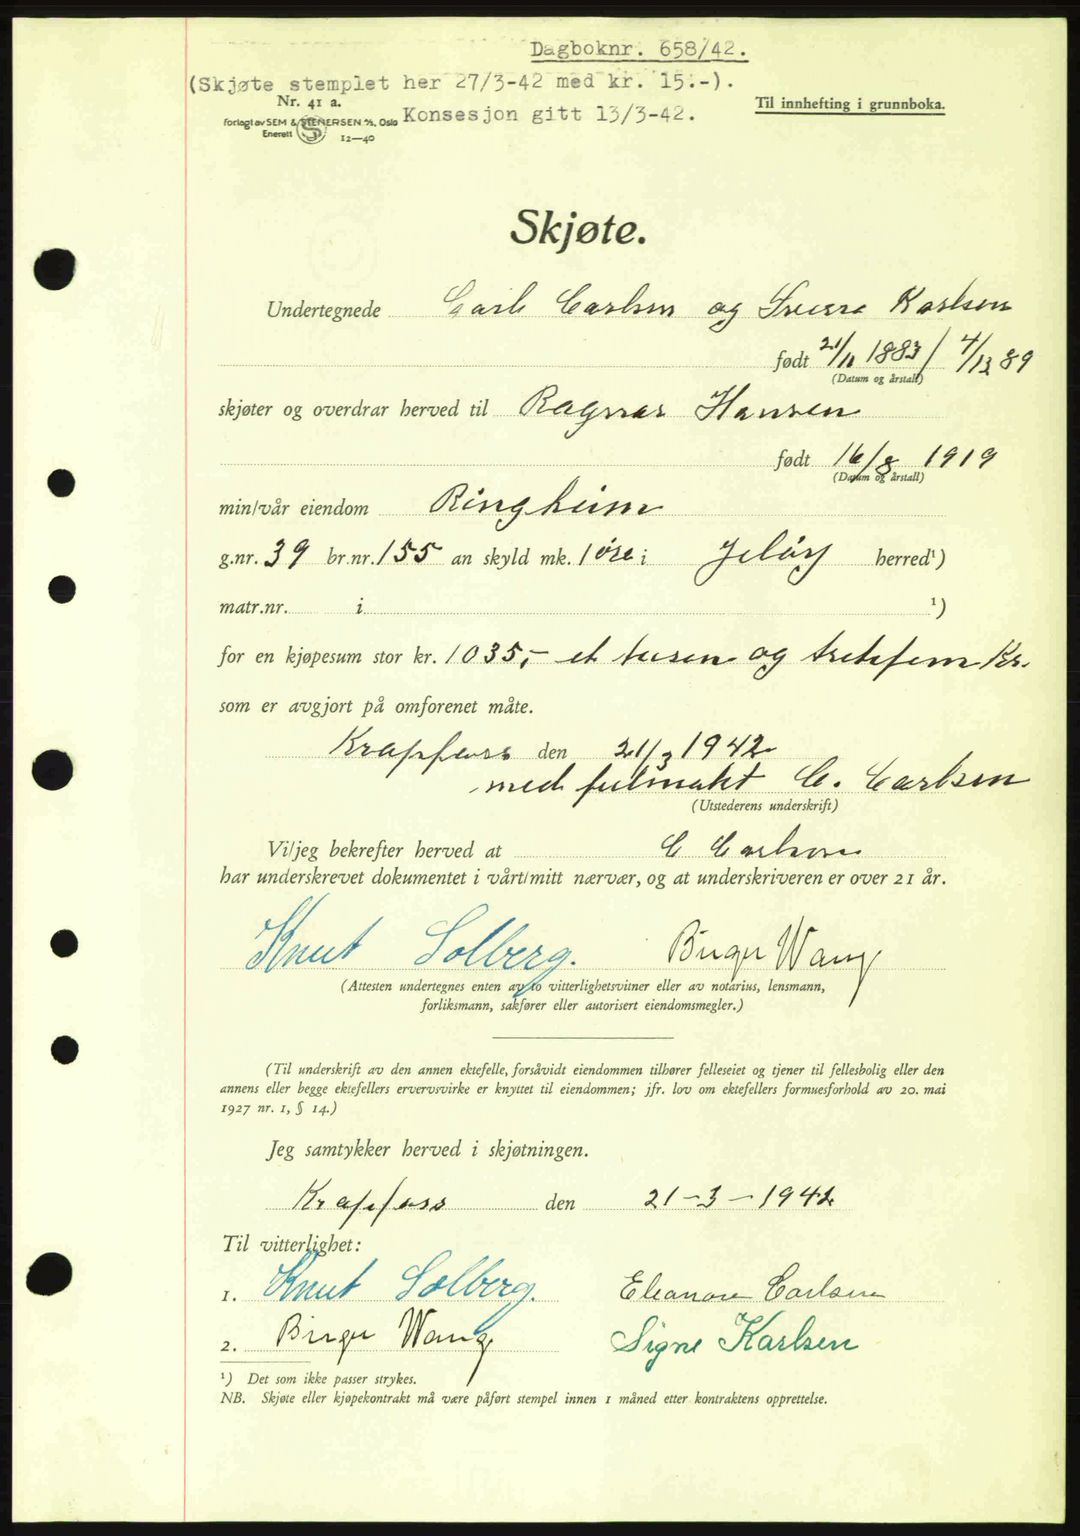 Dagboknr. 658/42.
(Skjøte stemplet her 27/3-42 med kr. 15.-).
Nr. 41 a.
Til innhefting i grunnboka.
Forlagt av SEM & STENERSEN A/S, Oslo
Konsesjon gitt 13/3-42.
Enerett
12—40
Skjøte.
Undertegnede Carl Carlsen og Sverre Karlsen
født 21/11 1883 / 4/12 89
(Datum og årstall)
skjøter og overdrar herved til Ragnar Hansen
født 16/8 1919
(Datum og årstall)
min/vår eiendom Ringheim
g.nr. 39 br.nr. 155 an skyld mk. 1 øre i Jeløy herred¹)
matr.nr. i ¹)
for en kjøpesum stor kr. 1035,- et tusen og tretifem Kr.
som er avgjort på omforenet måte.
Krapfoss den 21/3 1942
med fullmakt C. Carlsen
(Utstederens underskrift)
Vi/jeg bekrefter herved at C Carlsen
har underskrevet dokumentet i vårt/mitt nærvær, og at underskriveren er over 21 år.
Knut Solberg. Birger Wang
(Attesten undertegnes enten av to vitterlighetsvitner eller av notarius, lensmann,
forliksmann, sakfører eller autorisert eiendomsmegler.)
(Til underskrift av den annen ektefelle, forsåvidt eiendommen tilhører felleseiet og tjener til fellesbolig eller den
annens eller begge ektefellers ervervsvirke er knyttet til eiendommen; jfr. lov om ektefellers formuesforhold av 20. mai
1927 nr. 1, § 14.)
Jeg samtykker herved i skjøtningen.
Krapfoss den 21-3-1942
Til vitterlighet:
1. Knut Solberg. Eleanore Carlsen
2. Birger Wang Signe Karlsen
¹) Det som ikke passer strykes.
NB. Skjøte eller kjøpekontrakt må være påført stempel innen 1 måned etter kontraktens opprettelse.